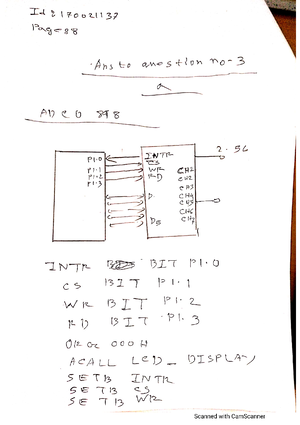 Id : 170021137
Page - 08
Ans to question no - 3
a
ADC0 848
INTR
CS
WR
RD
P1.0
P1.1
P1.2
P1.3
2.56
CH1
CH2
CH3
CH4
CH5
CH6
CH7
INTR BIT P1.0
CS BIT P1.1
WR BIT P1.2
RD BIT P1.3
ORG 000H
ACALL LCD_DISPLAY
SETB INTR
SETB CS
SETB WR
Scanned with CamScanner